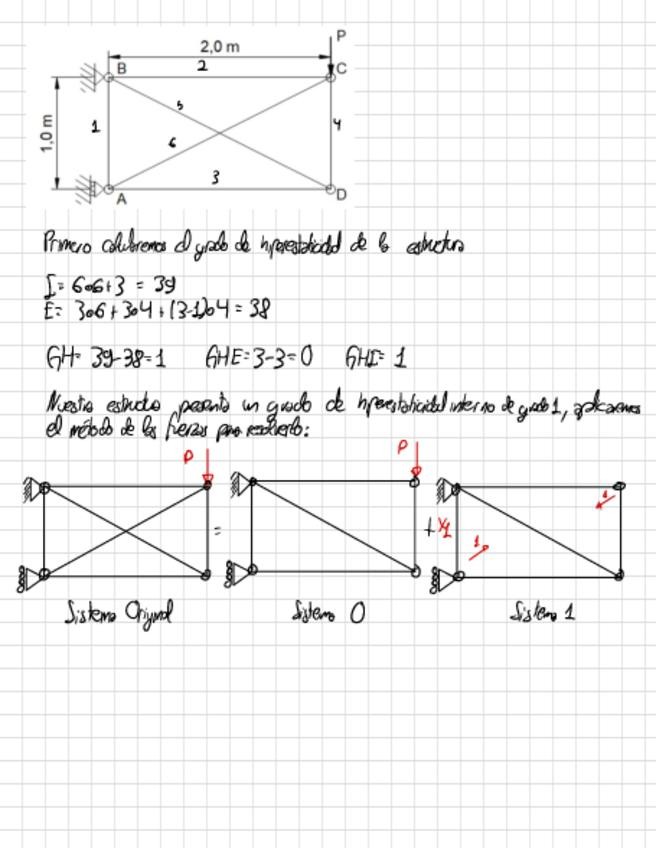 P
2,0 m
B
2
C
5
1,0 m
1
6
4
3
A
D
Primero calcularemos el grado de hiperestaticidad de la estructura
I = 6·6+3 = 39
E = 3·6 + 3·4 + (3-1)·4 = 38
GH = 39-38=1 GHE=3-3=0 GHI= 1
Nuestra estructura presenta un grado de hiperestaticidad interno de grado 1, aplicaremos
el método de las fuerzas para resolverlo:
P
P
=
+ X1
1
1
Sistema Original
Sistema 0
Sistema 1